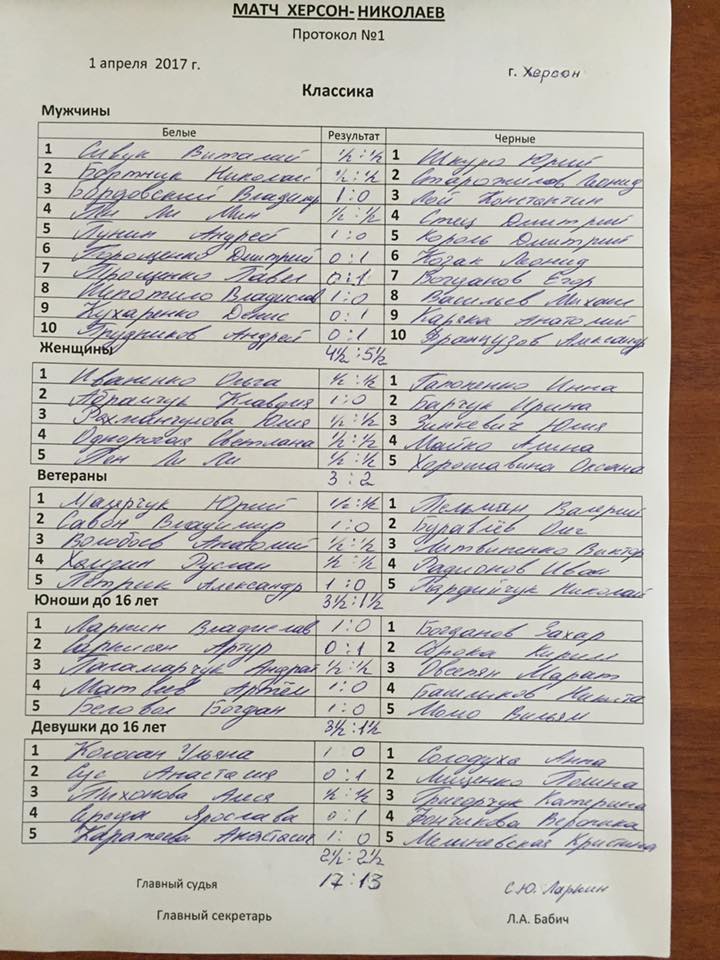 МАТЧ ХЕРСОН-НИКОЛАЕВ
Протокол №1
1 апреля 2017 г. г. Херсон
Классика
Мужчины
Белые Результат Черные
1 Сивук Виталий ½:½ 1 Шкуро Юрий
2 Бортник Николай ½:½ 2 Старожилов Леонид
3 Бордовский Владимир 1:0 3 Лой Константин
4 Пен Ли Мин ½:½ 4 Стец Дмитрий
5 Лунин Андрей 1:0 5 Король Дмитрий
6 Горощенко Дмитрий 0:1 6 Козак Леонид
7 Трощенко Павел 0:1 7 Богданов Егор
8 Шпотило Владислав 1:0 8 Васильев Михаил
9 Кухаренко Денис 0:1 9 Каряка Анатолий
10 Прудников Андрей 0:1 10 Французов Александр
4½:5½
Женщины
1 Иваненко Ольга ½:½ 1 Гапоненко Инна
2 Абрамчук Клавдия 1:0 2 Барчук Ирина
3 Рахмангулова Юлия ½:½ 3 Зинкевич Юлия
4 Одноробая Светлана ½:½ 4 Майко Алина
5 Пен Ли Ли ½:½ 5 Хорошавина Оксана
3:2
Ветераны
1 Мазярчук Юрий ½:½ 1 Тельман Валерий
2 Савон Владимир 1:0 2 Буравлёв Олег
3 Воробьев Анатолий ½:½ 3 Литвиненко Виктор
4 Руслан ½:½ 4 Радионов Иван
5 Петрик Александр 1:0 5 Николай
3½:1½
Юноши до 16 лет
1 Ларкин Владислав 1:0 1 Богданов Захар
2 Саркисян Артур 0:1 2 Сорока Кирилл
3 Паламарчук Андрей ½:½ 3 Овсепян Марат
4 Матвеев Артём 1:0 4 Башликов Никита
5 Беловол Богдан 1:0 5 Момо Вильям
3½:1½
Девушки до 16 лет
1 Ульяна 1 0 1 Солодуха Анна
2 Сус Анастасия 0:1 2 Мищенко Полина
3 Тихонова Алися ½:½ 3 Григорчук Катерина
4 Середа Ярослава 0:1 4 Фончикова Вероника
5 Каратеева Анастасия 1:0 5 Мелиневская Кристина
2½:2½
Главный судья 17:13 С.Ю. Ларкин
Главный секретарь Л.А. Бабич